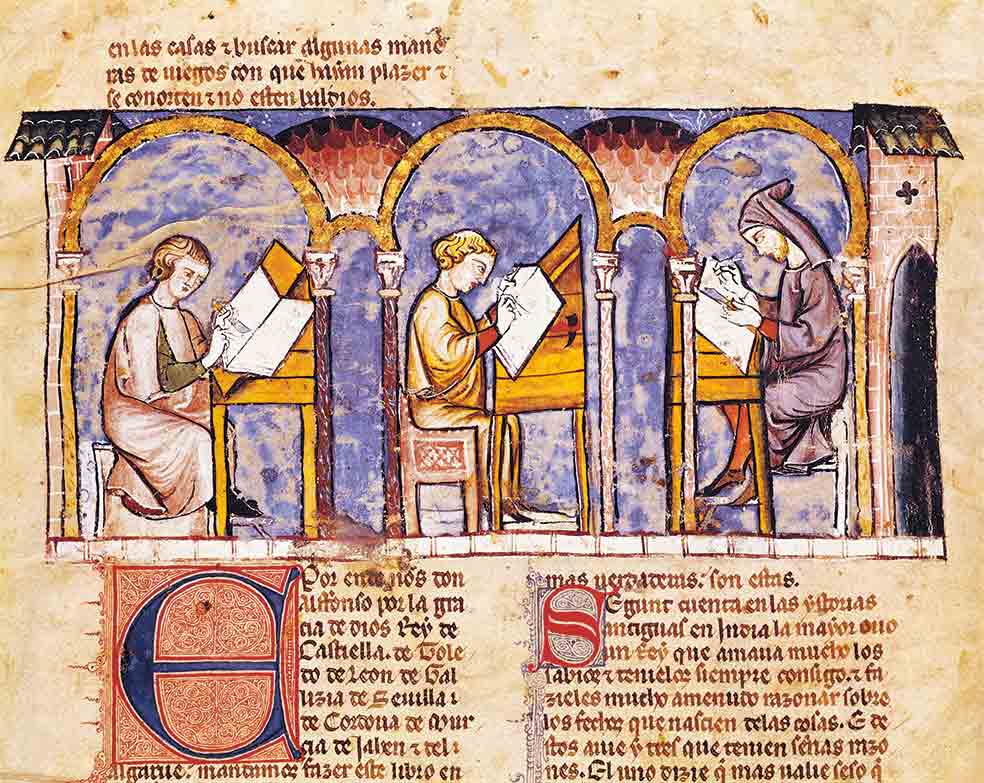 en las casas ⁊ buscar algunas mane
ras de iuegos con que hayan plazer ⁊
se conorten ⁊ no esten baldios.
E Por ende nos don
alffonso por la gra
cia de dios Rey de
Castiella. de Tole
do de Leon de Gal
lizia de Seuilla i
de Cordoua de Mur
cia de Jahen ⁊ del i
Algarue. mandamos fazer este libro en
mas uerdaderas. son estas.
Segunt cuenta en las ystorias
antiguas en India la mayor ouo
un Rey que amaua mucho los
sabios ⁊ tenielos siempre consigo. ⁊ fa
zieles mucho amenudo razonar sobre
los fechos que nascien delas cosas. E de
stos auie y tres que tenien sen̄as razo
nes. El uno dizie q̄ mas ualie seso q̄